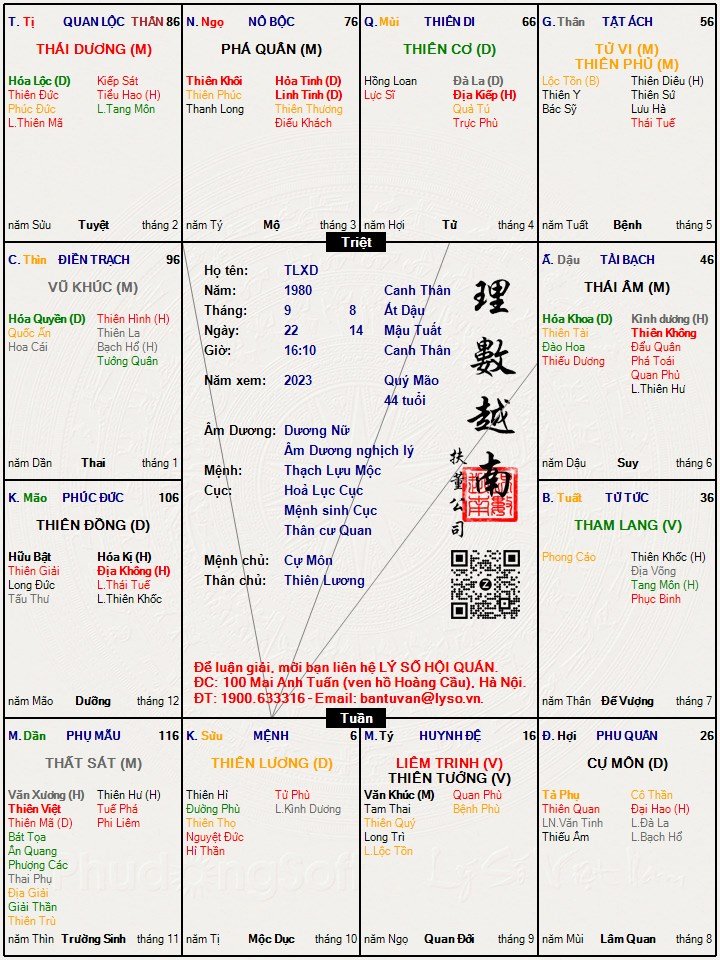 T. Tị QUAN LỘC THÂN 86
THÁI DƯƠNG (M)
Hóa Lộc (Đ) Kiếp Sát
Thiên Đức Tiểu Hao (H)
Phúc Đức L.Tang Môn
L.Thiên Mã
năm Sửu Tuyệt tháng 2
N. Ngọ NÔ BỘC 76
PHÁ QUÂN (M)
Thiên Khôi Hỏa Tinh (Đ)
Thiên Phúc Linh Tinh (Đ)
Thanh Long Thiên Thương
Điếu Khách
năm Tý Mộ tháng 3
Q. Mùi THIÊN DI 66
THIÊN CƠ (Đ)
Hồng Loan Đà La (Đ)
Lực Sĩ Địa Kiếp (H)
Quả Tú
Trực Phù
năm Hợi Tử tháng 4
G. Thân TẬT ÁCH 56
TỬ VI (M)
THIÊN PHỦ (M)
Lộc Tồn (B) Thiên Diêu (H)
Thiên Y Thiên Sứ
Bác Sỹ Lưu Hà
Thái Tuế
năm Tuất Bệnh tháng 5
Triệt
C. Thìn ĐIỀN TRẠCH 96
VŨ KHÚC (M)
Hóa Quyền (Đ) Thiên Hình (H)
Quốc Ấn Thiên La
Hoa Cái Bạch Hổ (H)
Tướng Quân
năm Dần Thai tháng 1
Họ tên: TLXD
Năm: 1980 Canh Thân
Tháng: 9 8 Ất Dậu
Ngày: 22 14 Mậu Tuất
Giờ: 16:10 Canh Thân
Năm xem: 2023 Quý Mão
44 tuổi
Âm Dương: Dương Nữ
Âm Dương nghịch lý
Mệnh: Thạch Lựu Mộc
Cục: Hoả Lục Cục
Mệnh sinh Cục
Thân cư Quan
Mệnh chủ: Cự Môn
Thân chủ: Thiên Lương
理數越南
扶董公司
Để luận giải, mời bạn liên hệ LÝ SỐ HỘI QUÁN.
ĐC: 100 Mai Anh Tuấn (ven hồ Hoàng Cầu), Hà Nội.
ĐT: 1900.633316 - Email: bantuvan@lyso.vn.
Ấ. Dậu TÀI BẠCH 46
THÁI ÂM (M)
Hóa Khoa (Đ) Kình dương (H)
Thiên Tài Thiên Không
Đào Hoa Đẩu Quân
Thiếu Dương Phá Toái
Quan Phủ
L.Thiên Hư
năm Dậu Suy tháng 6
K. Mão PHÚC ĐỨC 106
THIÊN ĐỒNG (Đ)
Hữu Bật Hóa Kị (H)
Thiên Giải Địa Không (H)
Long Đức L.Thái Tuế
Tấu Thư L.Thiên Khốc
năm Mão Dưỡng tháng 12
B. Tuất TỬ TỨC 36
THAM LANG (V)
Phong Cáo Thiên Khốc (H)
Địa Võng
Tang Môn (H)
Phục Binh
năm Thân Đế Vượng tháng 7
Tuần
M. Dần PHỤ MẪU 116
THẤT SÁT (M)
Văn Xương (H) Thiên Hư (H)
Thiên Việt Tuế Phá
Thiên Mã (Đ) Phi Liêm
Bát Tọa
Ân Quang
Phượng Các
Thai Phụ
Địa Giải
Giải Thần
Thiên Trù
năm Thìn Trường Sinh tháng 11
K. Sửu MỆNH 6
THIÊN LƯƠNG (Đ)
Thiên Hỉ Tử Phù
Đường Phù L.Kình Dương
Thiên Thọ
Nguyệt Đức
Hỉ Thần
năm Tị Mộc Dục tháng 10
M. Tý HUYNH ĐỆ 16
LIÊM TRINH (V)
THIÊN TƯỚNG (V)
Văn Khúc (M) Quan Phù
Tam Thai Bệnh Phù
Thiên Quý
Long Trì
L.Lộc Tồn
năm Ngọ Quan Đới tháng 9
Đ. Hợi PHU QUÂN 26
CỰ MÔN (Đ)
Tả Phụ Cô Thần
Thiên Quan Đại Hao (H)
LN.Văn Tinh L.Đà La
Thiếu Âm L.Bạch Hổ
năm Mùi Lâm Quan tháng 8